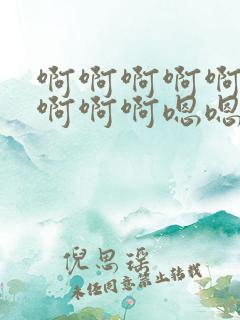 啊啊啊啊啊
啊啊啊嗯嗯
倪思瑶
未经同意禁止转载